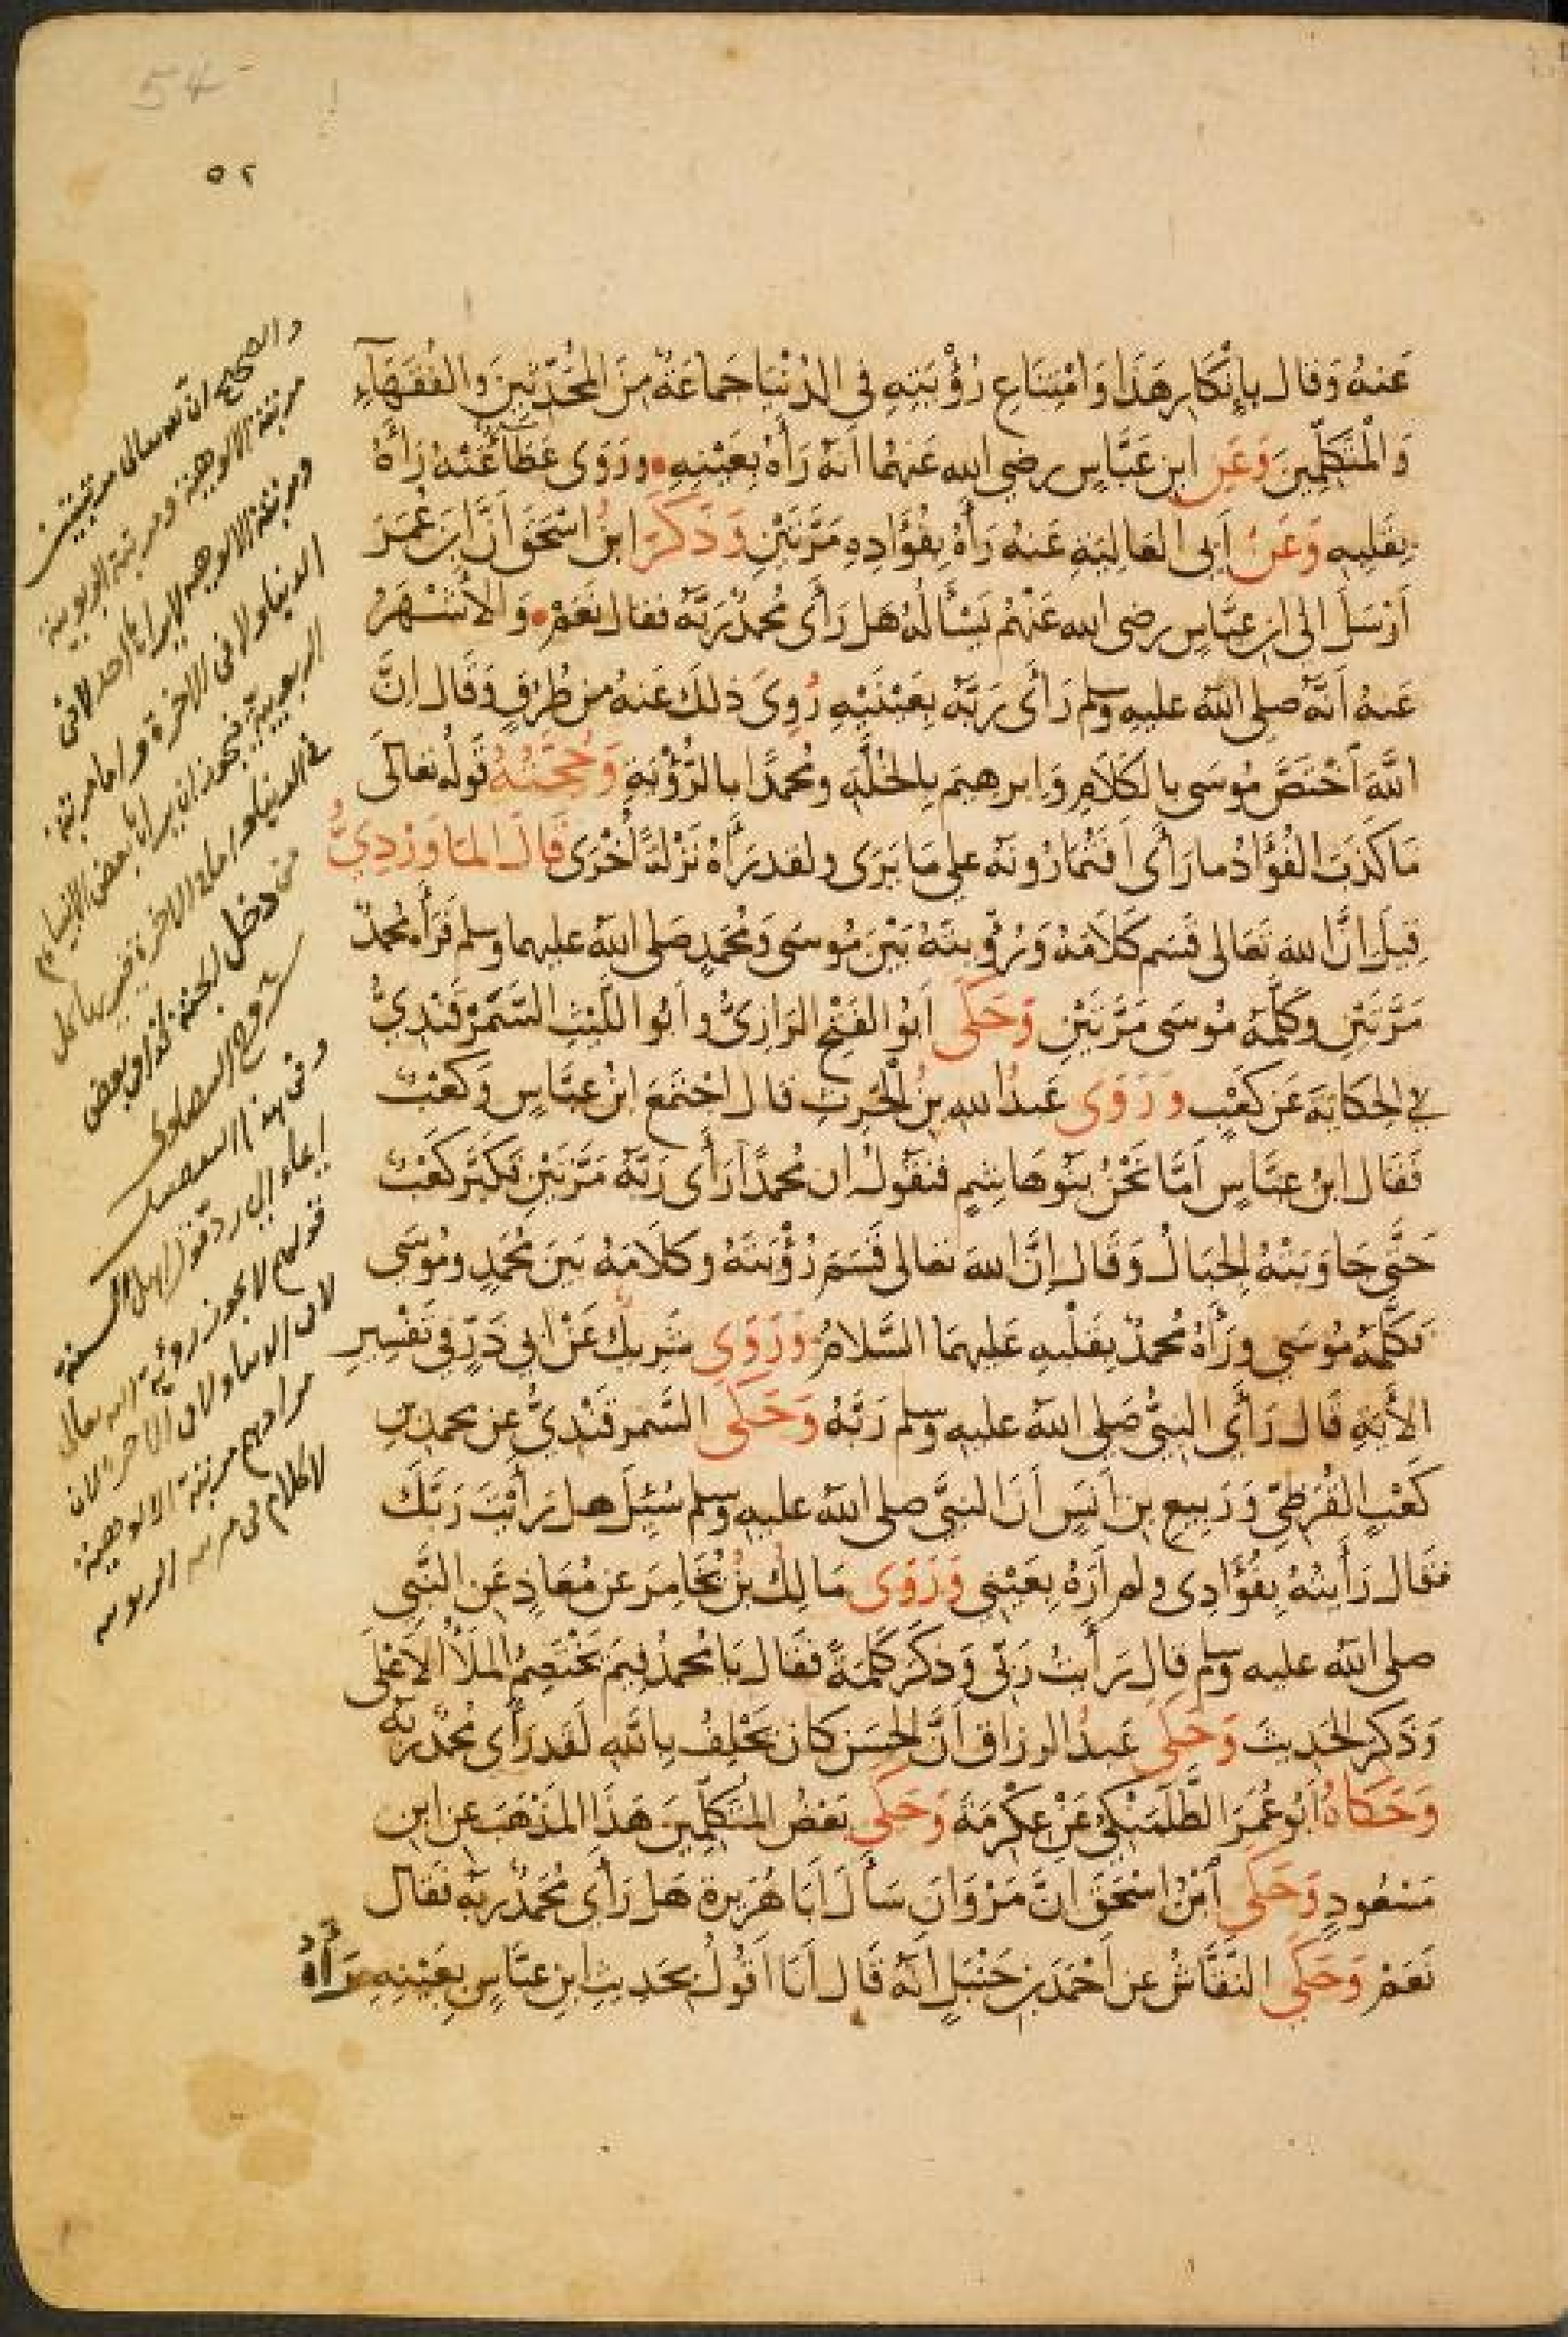 54
٥٢
عَنهُ وَقال بِإنْكَارِ هَذَا وَامْتِنَاعِ رُؤْيَتِهِ فِي الدُنْيَا جَماعَةٌ مِنَ المُحَدِّثِينَ وَالفُقَهَآءِ
وَالْمُتَكَلِّمِينَ وَعَنِ ابنِ عَبَّاسٍ رضي الله عَنهما انّهُ رَأهُ بِعَيْنِهِ وروَى عَطَاءٌ عَنْهُ رَأَهُ
بِقَلبِهِ وَعَنْ أبِي العَالِيَةِ عَنهُ رَأهُ بِفُؤَادِهِ مَرَّتَيْنِ وَذَكَرَ ابنُ اسْحَقَ اَنَّ ابنَ عُمَرَ
اَرْسَلَ الى ابنِ عَبَّاسٍ رضي الله عَنْهُم يَسْأَلُهُ هَل رَأَى مُحمدٌ رَبَّهُ فقال نَعَمْ وَالأشْهَرُ
عَنهُ اَنَّهُ صلى اللّه عليه وسلم رَأَى رَبَّهُ بِعَيْنَيْهِ رُوِيَ ذلِكَ عَنهُ من طُرُقٍ وَقَال اِنَّ
اللّهَ اخْتَصَّ مُوسَى بِالكَلَامِ وَابرهيمَ بِالخُلَّةِ ومُحمدًا بالرُّؤْيَةِ وَحُجَّتُهُ قَولُه تعالَى
مَا كَذَبَ الفُؤَادُ ما رَأى اَفَتُمَارُونَهُ علي مَا يَرَى ولقد رَأهُ نَزْلَةً أُخْرَى قَالَ المَاوَرْدِيُّ
قِيلَ انَّ الله تَعَالى قَسَم كَلَامَهُ وَرُؤيتَهُ بَيْنَ مُوسَى وَمُحَمدٍ صَلى اللّه عليهما وسلم فَرَأهُ مُحمدٌ
مَرَّتَيْنِ وكَلَّمَهُ مُوسَى مَرَّتَيْنِ وَحَكَى اَبُو الفَتْحِ الرَازِيُّ وابُو اللّيْثِ السَّمَرْقَنْدِيُّ
في الحِكَايَةَ عَن كَعْبٍ وَرَوَى عَبدُ اللهِ بنُ الحَرِثِ قال اجْتَمَعَ ابنُ عَبَّاسٍ وَكَعْبٌ
فَقَال ابنُ عبَّاسٍ اَمَّا نَحْنُ بَنُو هَاشِمٍ فنَقُولُ ان مُحمدًا رَأَى رَبَّهُ مَرَّتَيْنِ فَكَبَّرَ كَعْبٌ
حَتّى جَاوَبَتْهُ الجِبَالُ وَقَال اِنَّ الله تعالى قَسَمَ رُؤْيَتَهُ وكلَامَهُ بَينَ مُحَمدٍ ومُوسَى
فَكلَّمَهُ مُوسَي وَرَأهُ مُحمدٌ بِقَلْبِهِ عَلَيهِمَا السَّلَامُ وَرَوَى شَرِيكٌ عَنْ ابِي ذَرٍّ في تَفْسِيرِ
الأيَةِ قَال رَأَى النبيُّ صَلى اللّه عليه وسلم رَبَّهُ وَحَكَى السَّمرقَنْدِيُّ عن محمد بنِ
كَعْبِ القُرَظِيّ وَرَبِيعِ بن اَنَسٍ اَنَ النبيَّ صلى اللّه عليه وسلم سُئِلَ هل رَأَيْتَ رَبَّكَ
فَقَال رَأَيتُهُ بِفُؤَادِى ولم اَرَهُ بِعَيْنِي وَرَوَى مَالِكُ بْنُ يُخَامِرَ عن مُعَاذٍ عَن النَّبِي
صلى اللّه عليه وسلم قال رَأَيتُ رَبّي وَذَكَرَ كَلِمَةً فَقَال يَا مُحمدُ فِيمَ يَخْتَصِمُ المَلَأُ الاَعْلَى
وَذَكرَ الحَدِيثَ وَحَكَى عَبدُ الرزاق اَنَّ الحسَن كان يَحْلِفُ بِاللّهِ لَقَد رَأَى مُحَمدٌ رَبّه
وَحَكَاهُ اَبُو عُمَرَ الطَّلَمَنْكِيُّ عَنْ عِكْرِمَةَ وَحَكَى بَعْضُ المُتَكَلّمِينَ هَذَا المَذهَبَ عن ابنِ
مَسْعُودٍ وَحَكَى ابْنُ اسْحَقَ انَّ مَرْوَانَ سَأَلَ اَبَا هُرَيرةَ هَل رَأَى مُحَمدٌ ربّهُ فَقَال
نَعَمْ وَحَكَى النقَّاشُ عن اَحْمَدَ بنِ حَنْبَلٍ انّهُ قَال اَنَا اَقُولُ بِحَدِيثِ ابنِ عبَّاسٍ بِعَيْنِهِ رَأهُ
رَآهُ
والصحيح ان لله تعالى مرتبتين
مرتبة الالوهية ومرتبة الربوبية
ومرتبة الالوهية لا يراها احد لا في
الدنيا ولا في الاخرة واما مرتبة
الربوبية فيجوز ان يراها بعض الانبياء
في الدنيا واما في الاخرة فيراها كل
من دخل الجنة كذا في بعض
وفي هذا التفصيل
ايماء الى رد قول اهل السنة
قولهم لا يجوز رؤية الله تعالى
لا في الدنيا ولا في الاخرة لان
مرادهم مرتبة الالوهية
لا كلام في مرتبة الربوبية